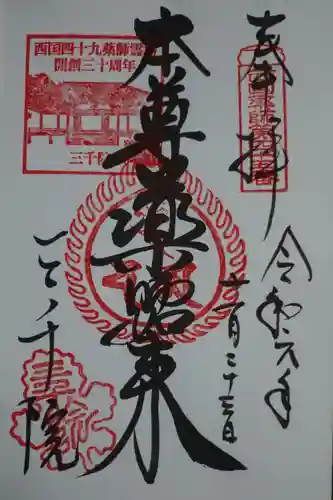 奉拝
令和六年
十一月二十三日
本尊薬師如来
三千院
西国四十九薬師霊
開創三十周年
三千院